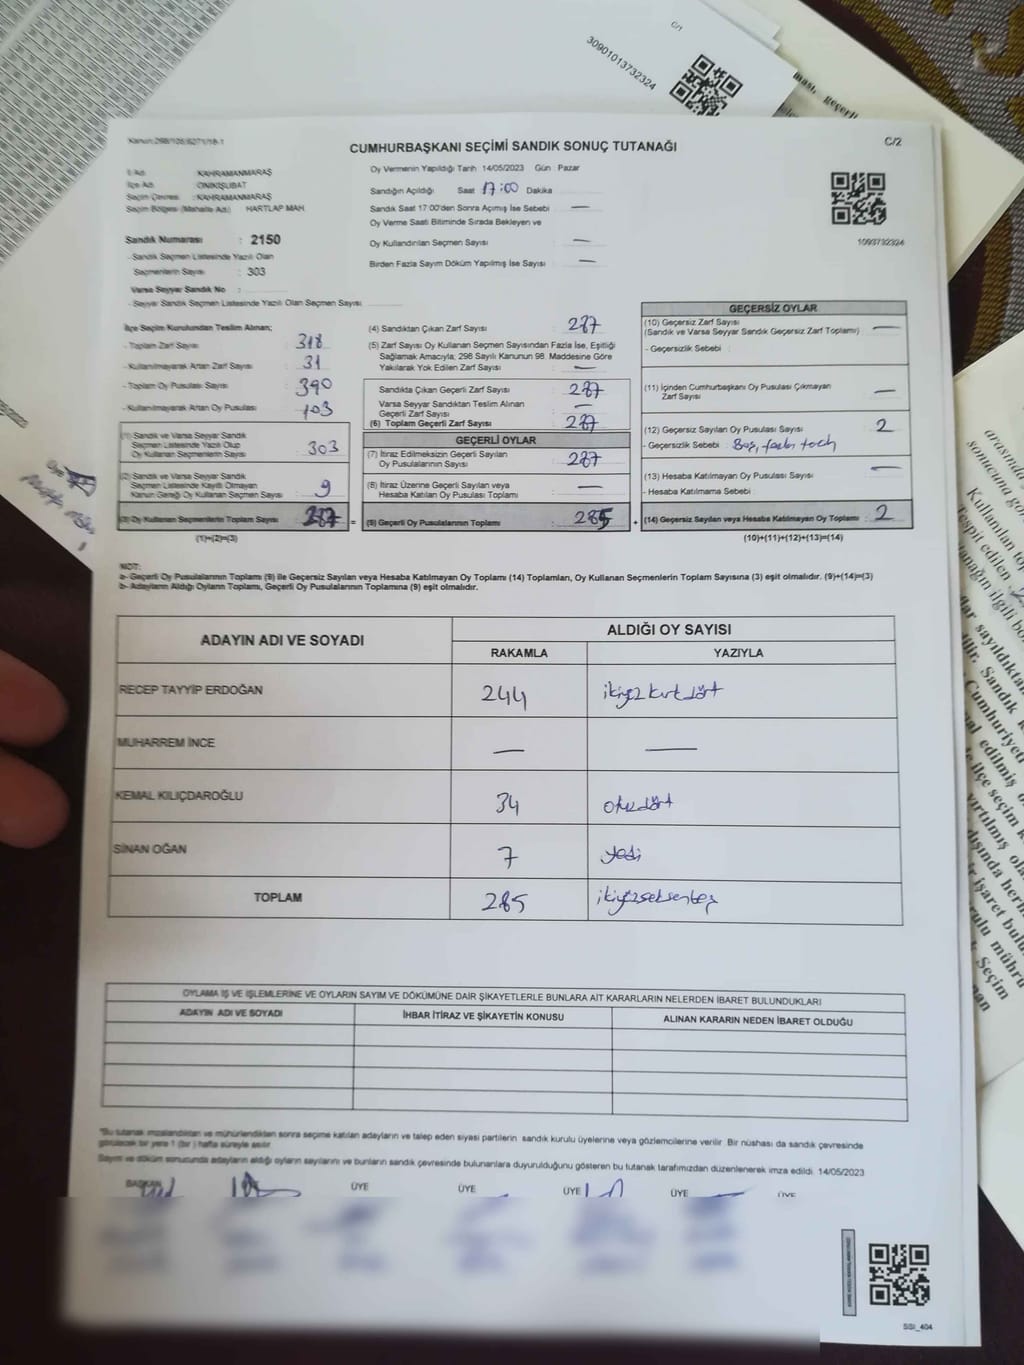 C/1
30901013732324
C/2
CUMHURBAŞKANI SEÇİMİ SANDIK SONUÇ TUTANAĞI
İl Adı : KAHRAMANMARAŞ
İlçe Adı : ONİKİŞUBAT
Seçim Çevresi : KAHRAMANMARAŞ
Seçim Bölgesi (Mahalle Adı) : HARTLAP MAH.
Sandık Numarası : 2150
- Sandık Seçmen Listesinde Yazılı Olan
Seçmenlerin Sayısı : 303
Varsa Seyyar Sandık No :
- Seyyar Sandık Seçmen Listesinde Yazılı Olan Seçmen Sayısı
Oy Vermenin Yapıldığı Tarih 14/05/2023 Gün : Pazar
Sandığın Açıldığı Saat 17:00 Dakika
Sandık Saat 17:00'den Sonra Açımış İse Sebebi —
Oy Verme Saati Bitiminde Sırada Bekleyen ve
Oy Kullandırılan Seçmen Sayısı —
Birden Fazla Sayım Döküm Yapılmış İse Sayısı —
1093732324
İlçe Seçim Kurulundan Teslim Alınan;
- Toplam Zarf Sayısı : 318
- Kullanılmayarak Artan Zarf Sayısı : 31
- Toplam Oy Pusulası Sayısı : 390
- Kullanılmayarak Artan Oy Pusulası : 103
(1) Sandık ve Varsa Seyyar Sandık
Seçmen Listesinde Yazılı Olup
Oy Kullanan Seçmenlerin Sayısı : 303
(2) Sandık ve Varsa Seyyar Sandık
Seçmen Listesinde Kayıtlı Olmayan
Kanun Gereği Oy Kullanan Seçmen Sayısı : 9
(3) Oy Kullanan Seçmenlerin Toplam Sayısı : 287 =
(1)+(2)=(3)
(4) Sandıktan Çıkan Zarf Sayısı : 287
(5) Zarf Sayısı Oy Kullanan Seçmen Sayısından Fazla İse, Eşitliği
Sağlamak Amacıyla; 298 Sayılı Kanunun 98. Maddesine Göre
Yakılarak Yok Edilen Zarf Sayısı : —
Sandıkta Çıkan Geçerli Zarf Sayısı : 287
Varsa Seyyar Sandıktan Teslim Alınan
Geçerli Zarf Sayısı : —
(6) Toplam Geçerli Zarf Sayısı : 287
GEÇERLİ OYLAR
(7) İtiraz Edilmeksizin Geçerli Sayılan
Oy Pusulalarının Sayısı : 287
(8) İtiraz Üzerine Geçerli Sayılan veya
Hesaba Katılan Oy Pusulası Toplamı : —
(9) Geçerli Oy Pusulalarının Toplamı : 285 +
GEÇERSİZ OYLAR
(10) Geçersiz Zarf Sayısı
(Sandık ve Varsa Seyyar Sandık Geçersiz Zarf Toplamı) : —
- Geçersizlik Sebebi :
(11) İçinden Cumhurbaşkanı Oy Pusulası Çıkmayan
Zarf Sayısı : —
(12) Geçersiz Sayılan Oy Pusulası Sayısı : 2
- Geçersizlik Sebebi :
(13) Hesaba Katılmayan Oy Pusulası Sayısı : —
- Hesaba Katılmama Sebebi :
(14) Geçersiz Sayılan veya Hesaba Katılmayan Oy Toplamı : 2
(10)+(11)+(12)+(13)=(14)
NOT:
a- Geçerli Oy Pusulalarının Toplamı (9) ile Geçersiz Sayılan veya Hesaba Katılmayan Oy Toplamı (14) Toplamları, Oy Kullanan Seçmenlerin Toplam Sayısına (3) eşit olmalıdır. (9)+(14)=(3)
b- Adayların Aldığı Oyların Toplamı, Geçerli Oy Pusulalarının Toplamına (9) eşit olmalıdır.
ADAYIN ADI VE SOYADI
ALDIĞI OY SAYISI
RAKAMLA YAZIYLA
RECEP TAYYİP ERDOĞAN 244 ikiyüz kırk dört
MUHARREM İNCE — —
KEMAL KILIÇDAROĞLU 34 otuz dört
SİNAN OĞAN 7 yedi
TOPLAM 285 ikiyüzseksenbeş
OYLAMA İŞ VE İŞLEMLERİNE VE OYLARIN SAYIM VE DÖKÜMÜNE DAİR ŞİKAYETLERLE BUNLARA AİT KARARLARIN NELERDEN İBARET BULUNDUKLARI
ADAYIN ADI VE SOYADI İHBAR İTİRAZ VE ŞİKAYETİN KONUSU ALINAN KARARIN NEDEN İBARET OLDUĞU
*Bu tutanak imzalandıktan ve mühürlendikten sonra seçime katılan adayların ve talep eden siyasi partilerin sandık kurulu üyelerine veya gözlemcilerine verilir. Bir nüshası da sandık çevresinde
görülecek bir yere 1 (bir) hafta süreyle asılır.
Sayım ve döküm sonucunda adayların aldığı oyların sayılarını ve bunların sandık çevresinde bulunanlara duyurulduğunu gösteren bu tutanak tarafımızdan düzenlenerek imza edildi. 14/05/2023
BAŞKAN ÜYE ÜYE ÜYE ÜYE ÜYE ÜYE
SSI_404